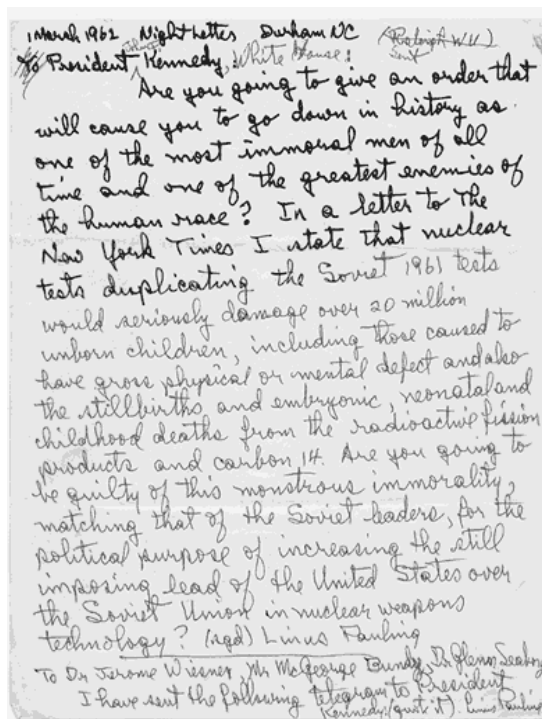 1 March 1962 Night Letter Durham NC (Raleigh W U)
To President John F. Kennedy, White House: sent
Are you going to give an order that
will cause you to go down in history as
one of the most immoral men of all
time and one of the greatest enemies of
the human race? In a letter to The
New York Times I state that nuclear
tests duplicating the Soviet 1961 tests
would seriously damage over 20 million
unborn children, including those caused to
have gross physical or mental defect and also
the stillbirths and embryonic, neonatal and
childhood deaths from the radioactive fission
products and carbon 14. Are you going to
be guilty of this monstrous immorality,
matching that of the Soviet leaders, for the
political purpose of increasing the still
imposing lead of the United States over
the Soviet Union in nuclear weapons
technology? (sgd) Linus Pauling
To Dr Jerome Wiesner, Mr McGeorge Bundy, Dr Glenn Seaborg
I have sent the following telegram to President
Kennedy: (quote it). Linus Pauling